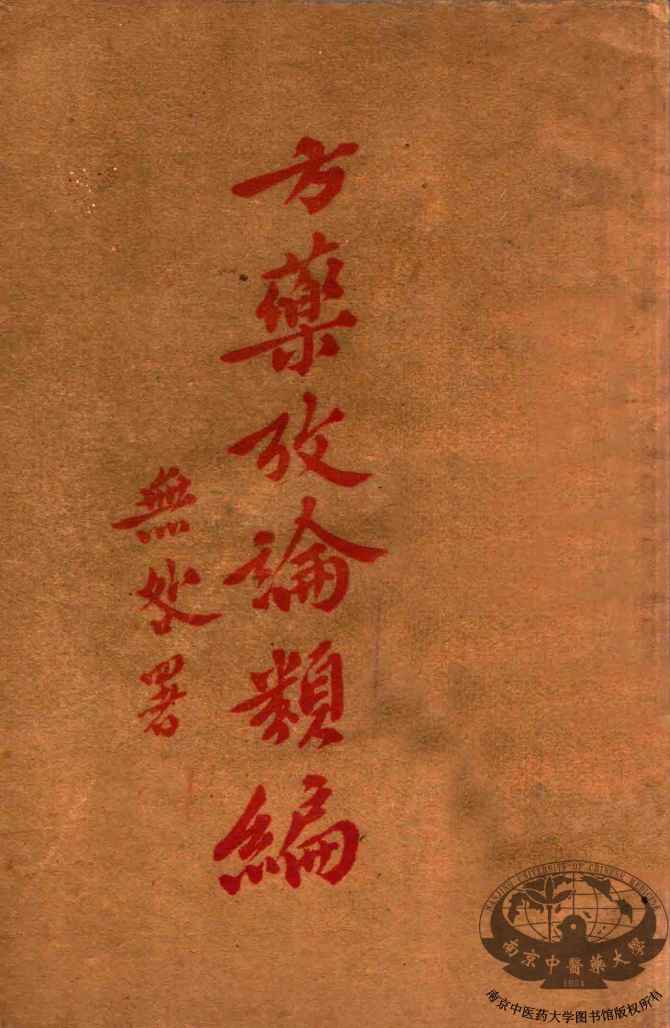 方藥攷論類編
無咎署
NANJING UNIVERSITY OF CHINESE MEDICINE
南京中醫藥大學
1954
南京中医药大学图书馆版权所有